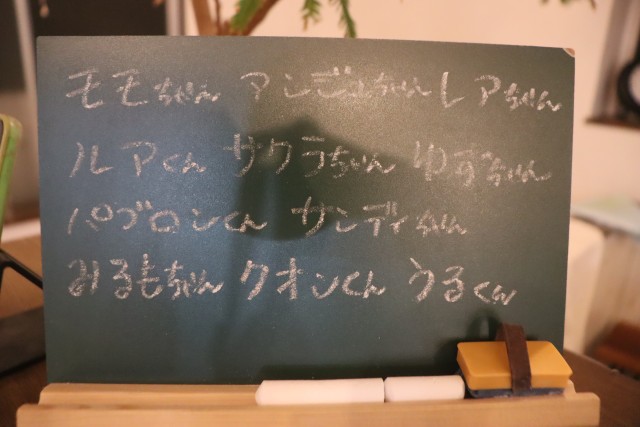 モモちゃん アンジュちゃん レアちゃん
ルアくん サクラちゃん ゆずちゃん
パブロンくん サンディちゃん
みるもちゃん クオンくん うるくん